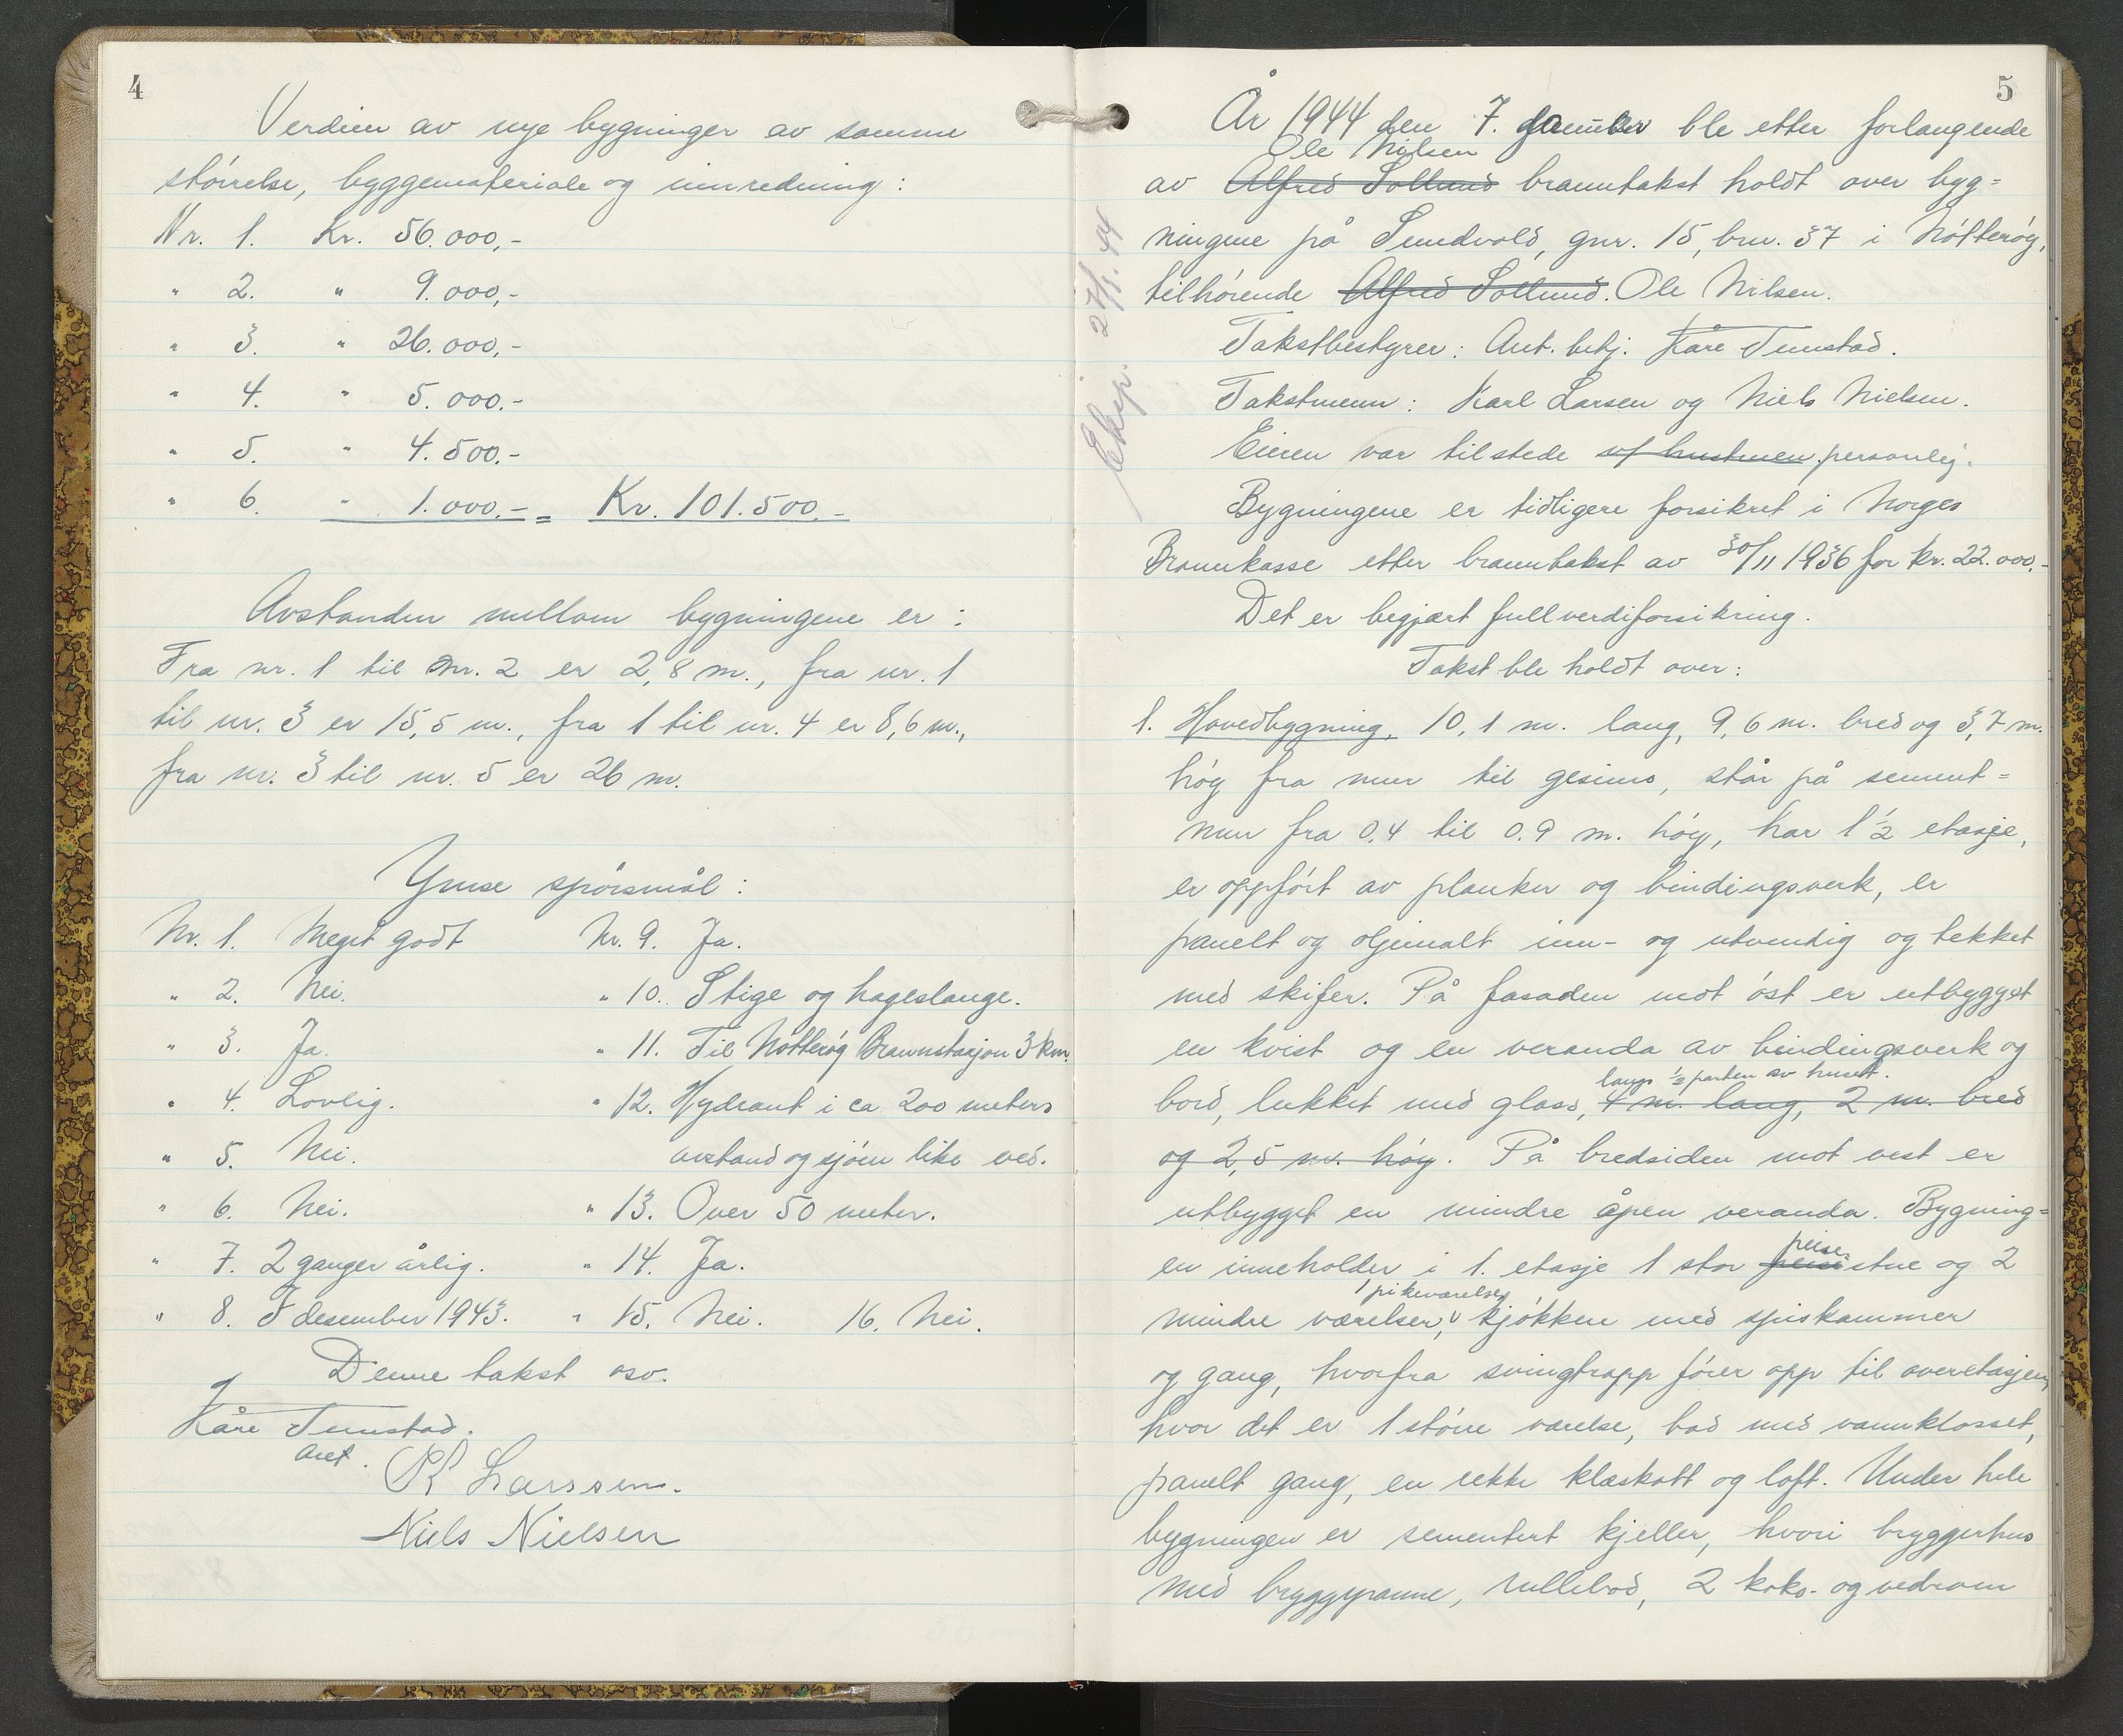 4
Verdien av nye bygninger av samme
størrelse, byggemateriale og innredning:
Nr. 1. Kr. 56.000,-
" 2. " 9.000,-
" 3. " 26.000,-
" 4. " 5.000.-
" 5. " 4.500.-
" 6. " 1.000.- = Kr. 101.500.-
Avstanden mellom bygningene er:
Fra nr. 1 til nr. 2 er 2,8 m., fra nr. 1
til nr. 3 er 15,5 m., fra 1 til nr. 4 er 8,6 m.,
fra nr. 3 til nr. 5 er 26 m.
Ymse spørsmål:
Nr. 1. Meget godt
" 2. Nei.
" 3. Ja.
" 4. Lovlig.
" 5. Nei.
" 6. Nei.
" 7. 2 ganger årlig.
" 8. I desember 1943.
Nr. 9. Ja.
" 10. Stige og hageslange.
" 11. Til Nøtterøy Brannstasjon 3 km.
" 12. Hydrant i ca 200 meters
avstand og sjøen like ved.
" 13. Over 50 meter.
" 14. Ja.
" 15. Nei. 16. Nei.
Denne takst osv.
Kåre Tunstad.
K Larssen.
Niels Nielsen
5
Eksp. 27/1. 44
År 1944 den 7. januar ble etter forlangende
Ole Nilsen
av Alfred Sollund branntakst holdt over byg=
ningene på Sundvold, gnr. 15, bnr. 37 i Nøtterøy,
tilhørende Alfred Sollund. Ole Nilsen.
Takstbestyrer: Aut. betj. Kåre Tunstad.
Takstmenn: Karl Larsen og Niels Nielsen.
Eieren var tilstede v/ hustruen personlig.
Bygningene er tidligere forsikret i Norges
Brannkasse etter branntakst av 30/11 1936 for kr. 22.000.-
Det er begjært fullverdiforsikring.
Takst ble holdt over:
1. Hovedbygning, 10,1 m. lang, 9,6 m. bred og 3,7 m.
høy fra mur til gesims, står på sement=
mur fra 0.4 til 0.9 m. høy, har 1 1/2 etasje,
er oppført av planker og bindingsverk, er
panelt og oljemalt inn- og utvendig og tekket
med skifer. På fasaden mot øst er utbygget
en kvist og en veranda av bindingsverk og
langs 1/2 parten av huset.
bord, lukket med glass, 4 m. lang, 2 m. bred
og 2,5 m. høy. På bredsiden mot vest er
utbygget en mindre åpen veranda. Bygning=
peise-
en inneholder i 1. etasje 1 stor peisestue og 2
1 pikeværelse,
mindre værelser, kjøkken med spiskammer
og gang, hvorfra svingtrapp fører opp til overetasjen,
hvor det er 1 større værelse, bad med vannklosset,
panelt gang, en rekke kleskott og loft. Under hele
bygningen er sementert kjeller, hvori bryggerhus
med bryggepanne, rullebod, 2 koks- og vedrom